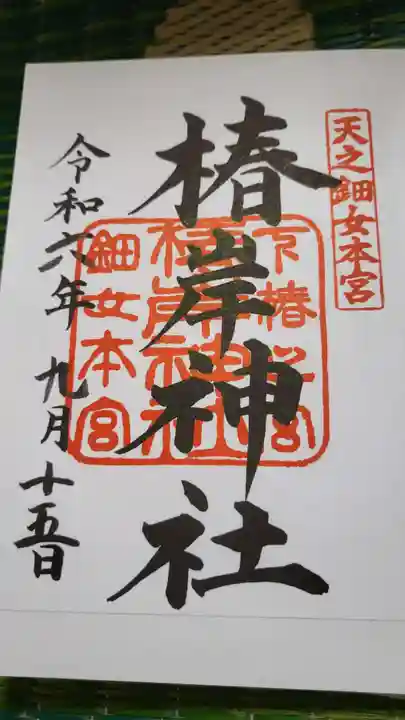 天之鈿女本宮
椿岸神社
下椿
椿岸神社
鈿女本宮
令和六年 九月十五日